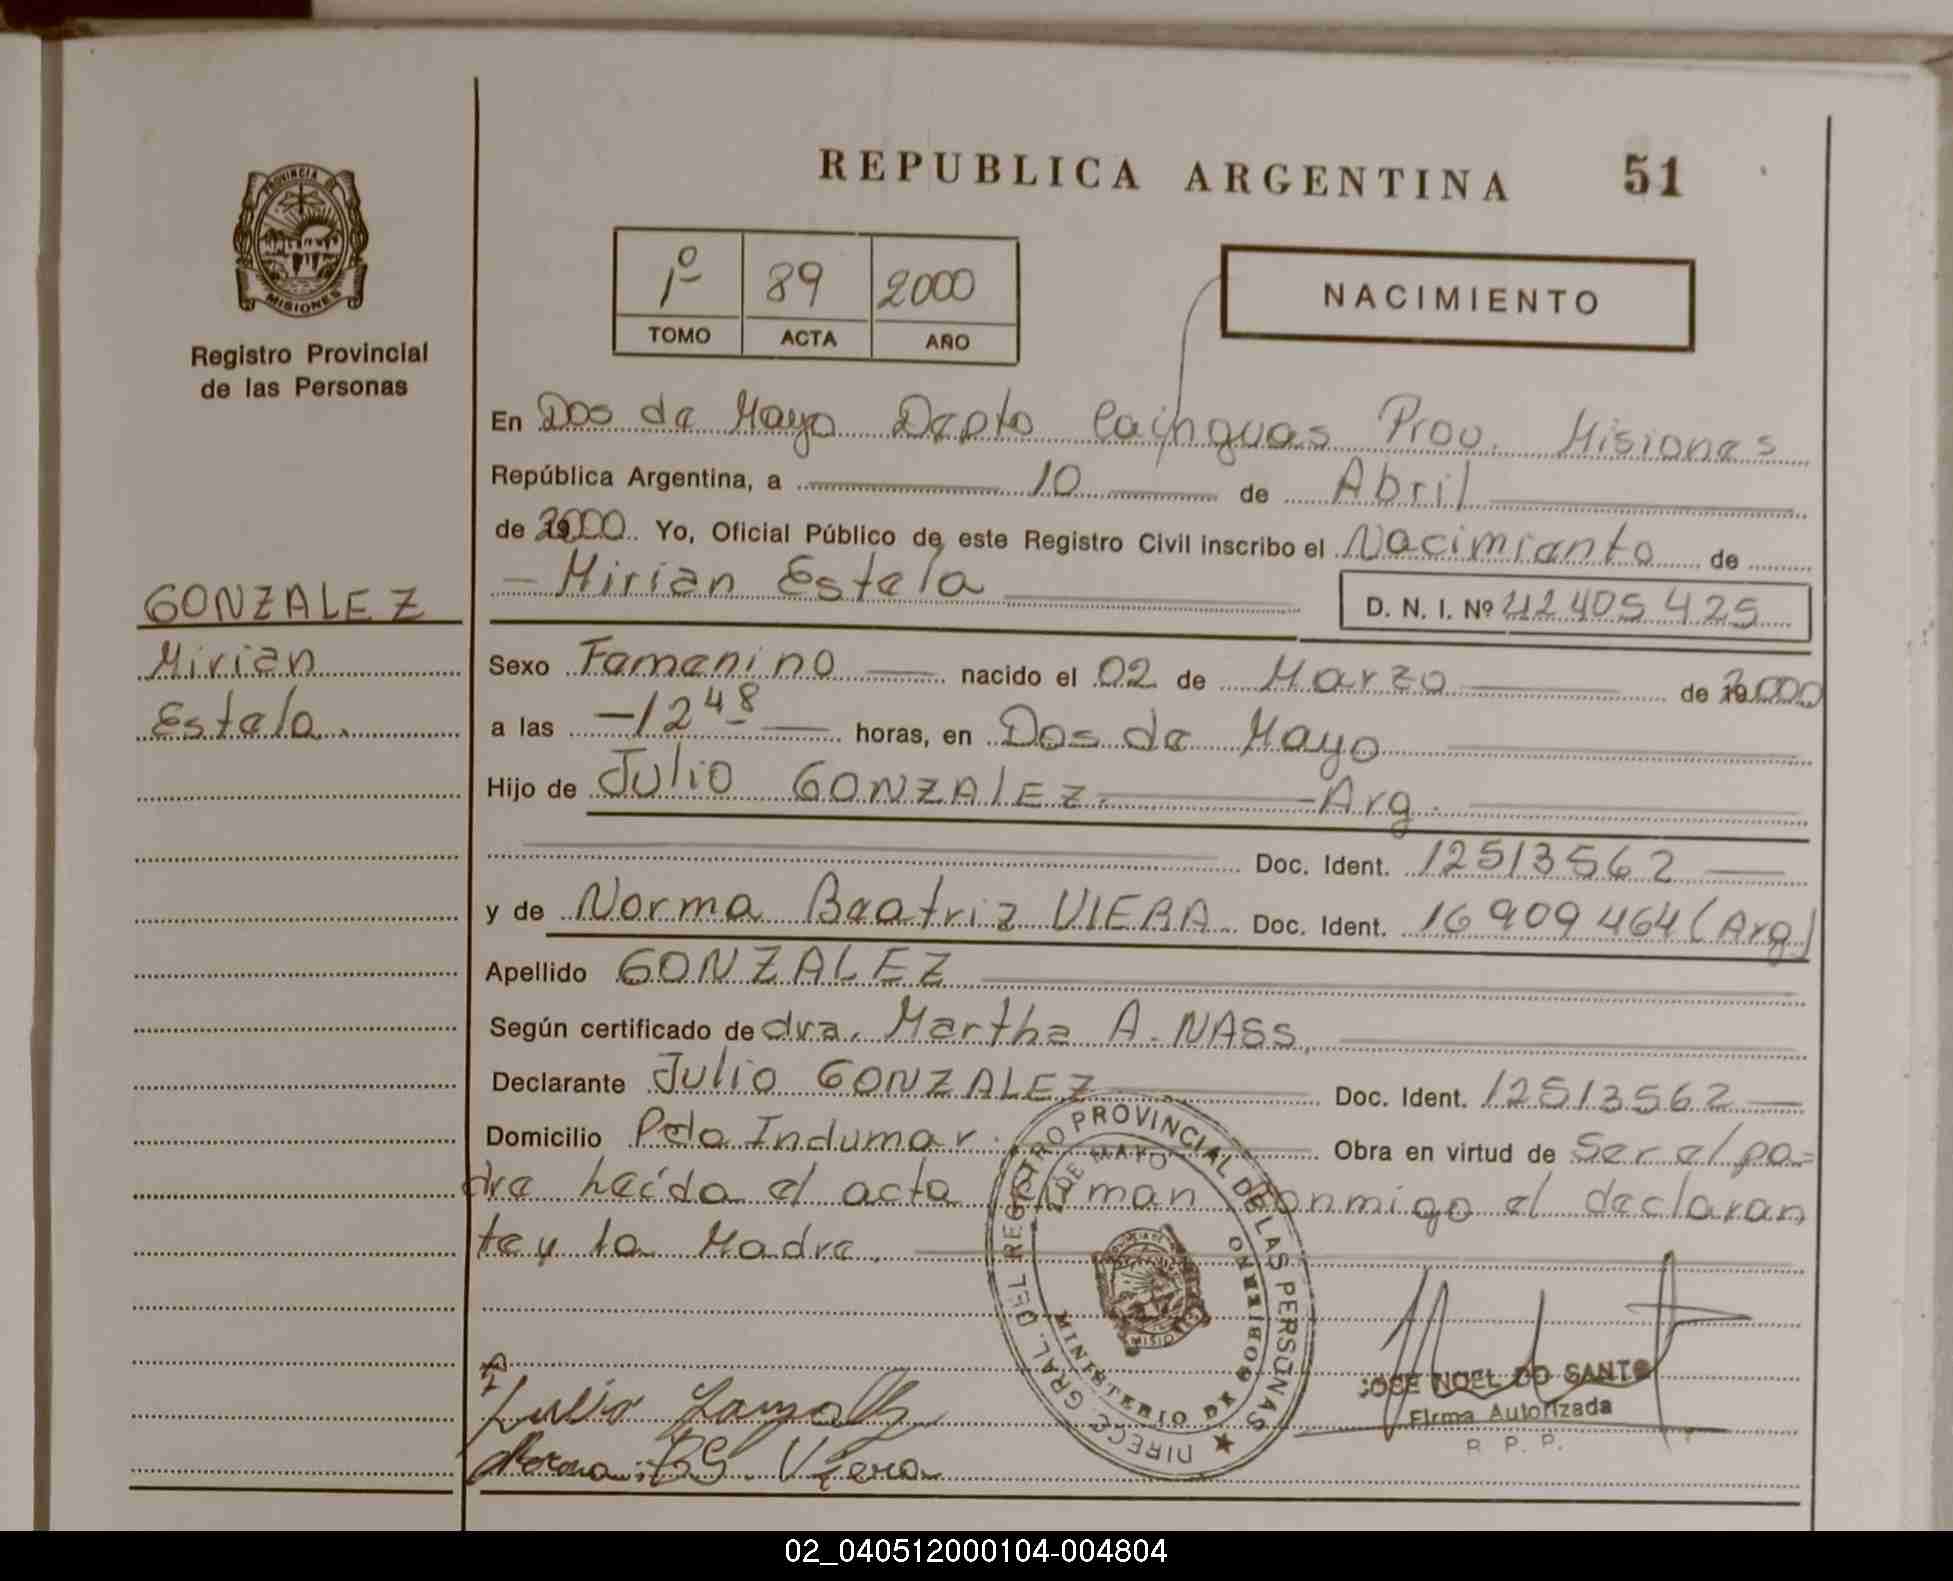 REPUBLICA ARGENTINA 51
PROVINCIA DE
MISIONES
Registro Provincial
de las Personas
1º 89 2000
TOMO ACTA AÑO
NACIMIENTO
En Dos de Mayo Depto Cainguas Prov. Misiones
República Argentina, a 10 de Abril
de 2000. Yo, Oficial Público de este Registro Civil inscribo el Nacimiento de
- Mirian Estela D. N. I. Nº 42405425
GONZALEZ
Mirian
Estela.
Sexo Femenino nacido el 02 de Marzo de 2000
a las -12 48 horas, en Dos de Mayo
Hijo de Julio GONZALEZ. - Arg.
Doc. Ident. 12513562
y de Norma Beatriz VIERA Doc. Ident. 16909464 (Arg)
Apellido GONZALEZ
Según certificado de dra. Martha A. NASS.
Declarante Julio GONZALEZ Doc. Ident. 12513562
Domicilio Pdo Indumar. Obra en virtud de Ser el pa=
dre Leída el acta firman conmigo el declaran
te y la Madre.
DIRECC. GRAL. DEL REGISTRO PROVINCIAL DE LAS PERSONAS
2 DE MAYO
MINISTERIO DE GOBIERNO
MISIONES
JOSE NOEL DO SANTO
Firma Autorizada
R. P. P.
Julio Gonzalez
Norma B. Viera
02_040512000104-004804